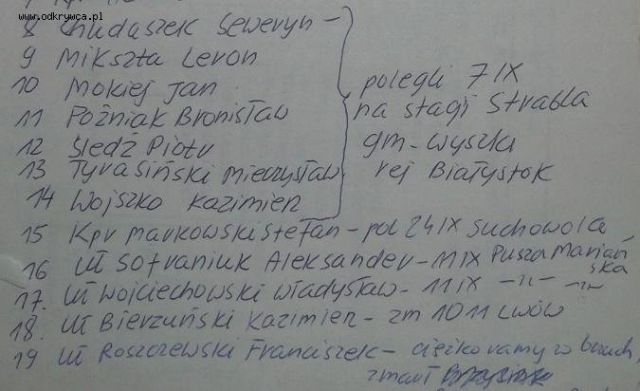 www.odkrywca.pl
8 Chudaszek Seweryn -
9 Mikszta Leon
10 Mokiej Jan
11 Poźniak Bronisław
12 Śledź Piotr
13 Tyrasiński Mieczysław
14 Wojszko Kazimierz
polegli 7 IX
na stagi Strabla
gm-wyszki
rej Białystok
15 Kpr Markowski Stefan - pol 24 IX Suchowola
16 Uł Sofraniuk Aleksander - 11 IX Pusza Mariańska
17. Uł Wojciechowski Władysław - 11 IX -"- -"-
18. Uł Bierzuński Kazimierz - zm 10 11 Lwów
19 Uł Roszczewski Franciszek - ciężko ranny w brzuch,
zmarł